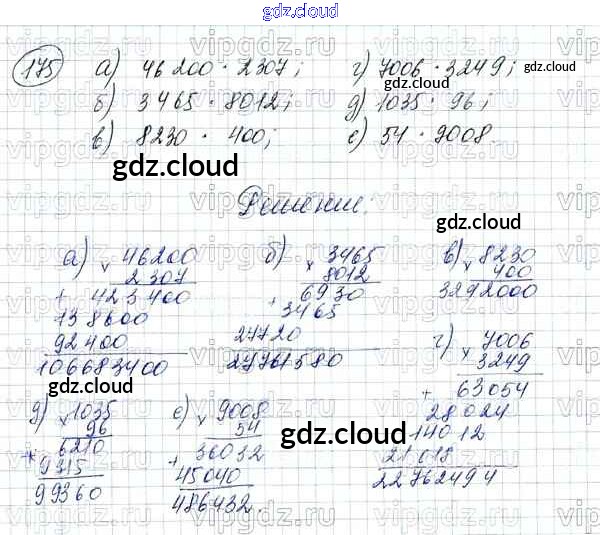 gdz.cloud
175 а) 46 200 · 2307; г) 7006 · 3249;
б) 3465 · 8012; д) 1035 · 96;
в) 8230 · 400; е) 54 · 9008.
Решение:
а) × 46200
2307
+ 423400
138600
92400
106683400
б) × 3465
8012
+ 6930
3465
27720
27761580
в) × 8230
400
3292000
г) × 7006
3249
+ 63054
28024
14012
21018
22762494
д) × 1035
96
+ 6210
9315
99360
е) × 9008
54
+ 36032
45040
486432.
gdz.cloud
gdz.cloud
gdz.cloud
gdz.cloud
gdz.cloud
gdz.cloud
gdz.cloud